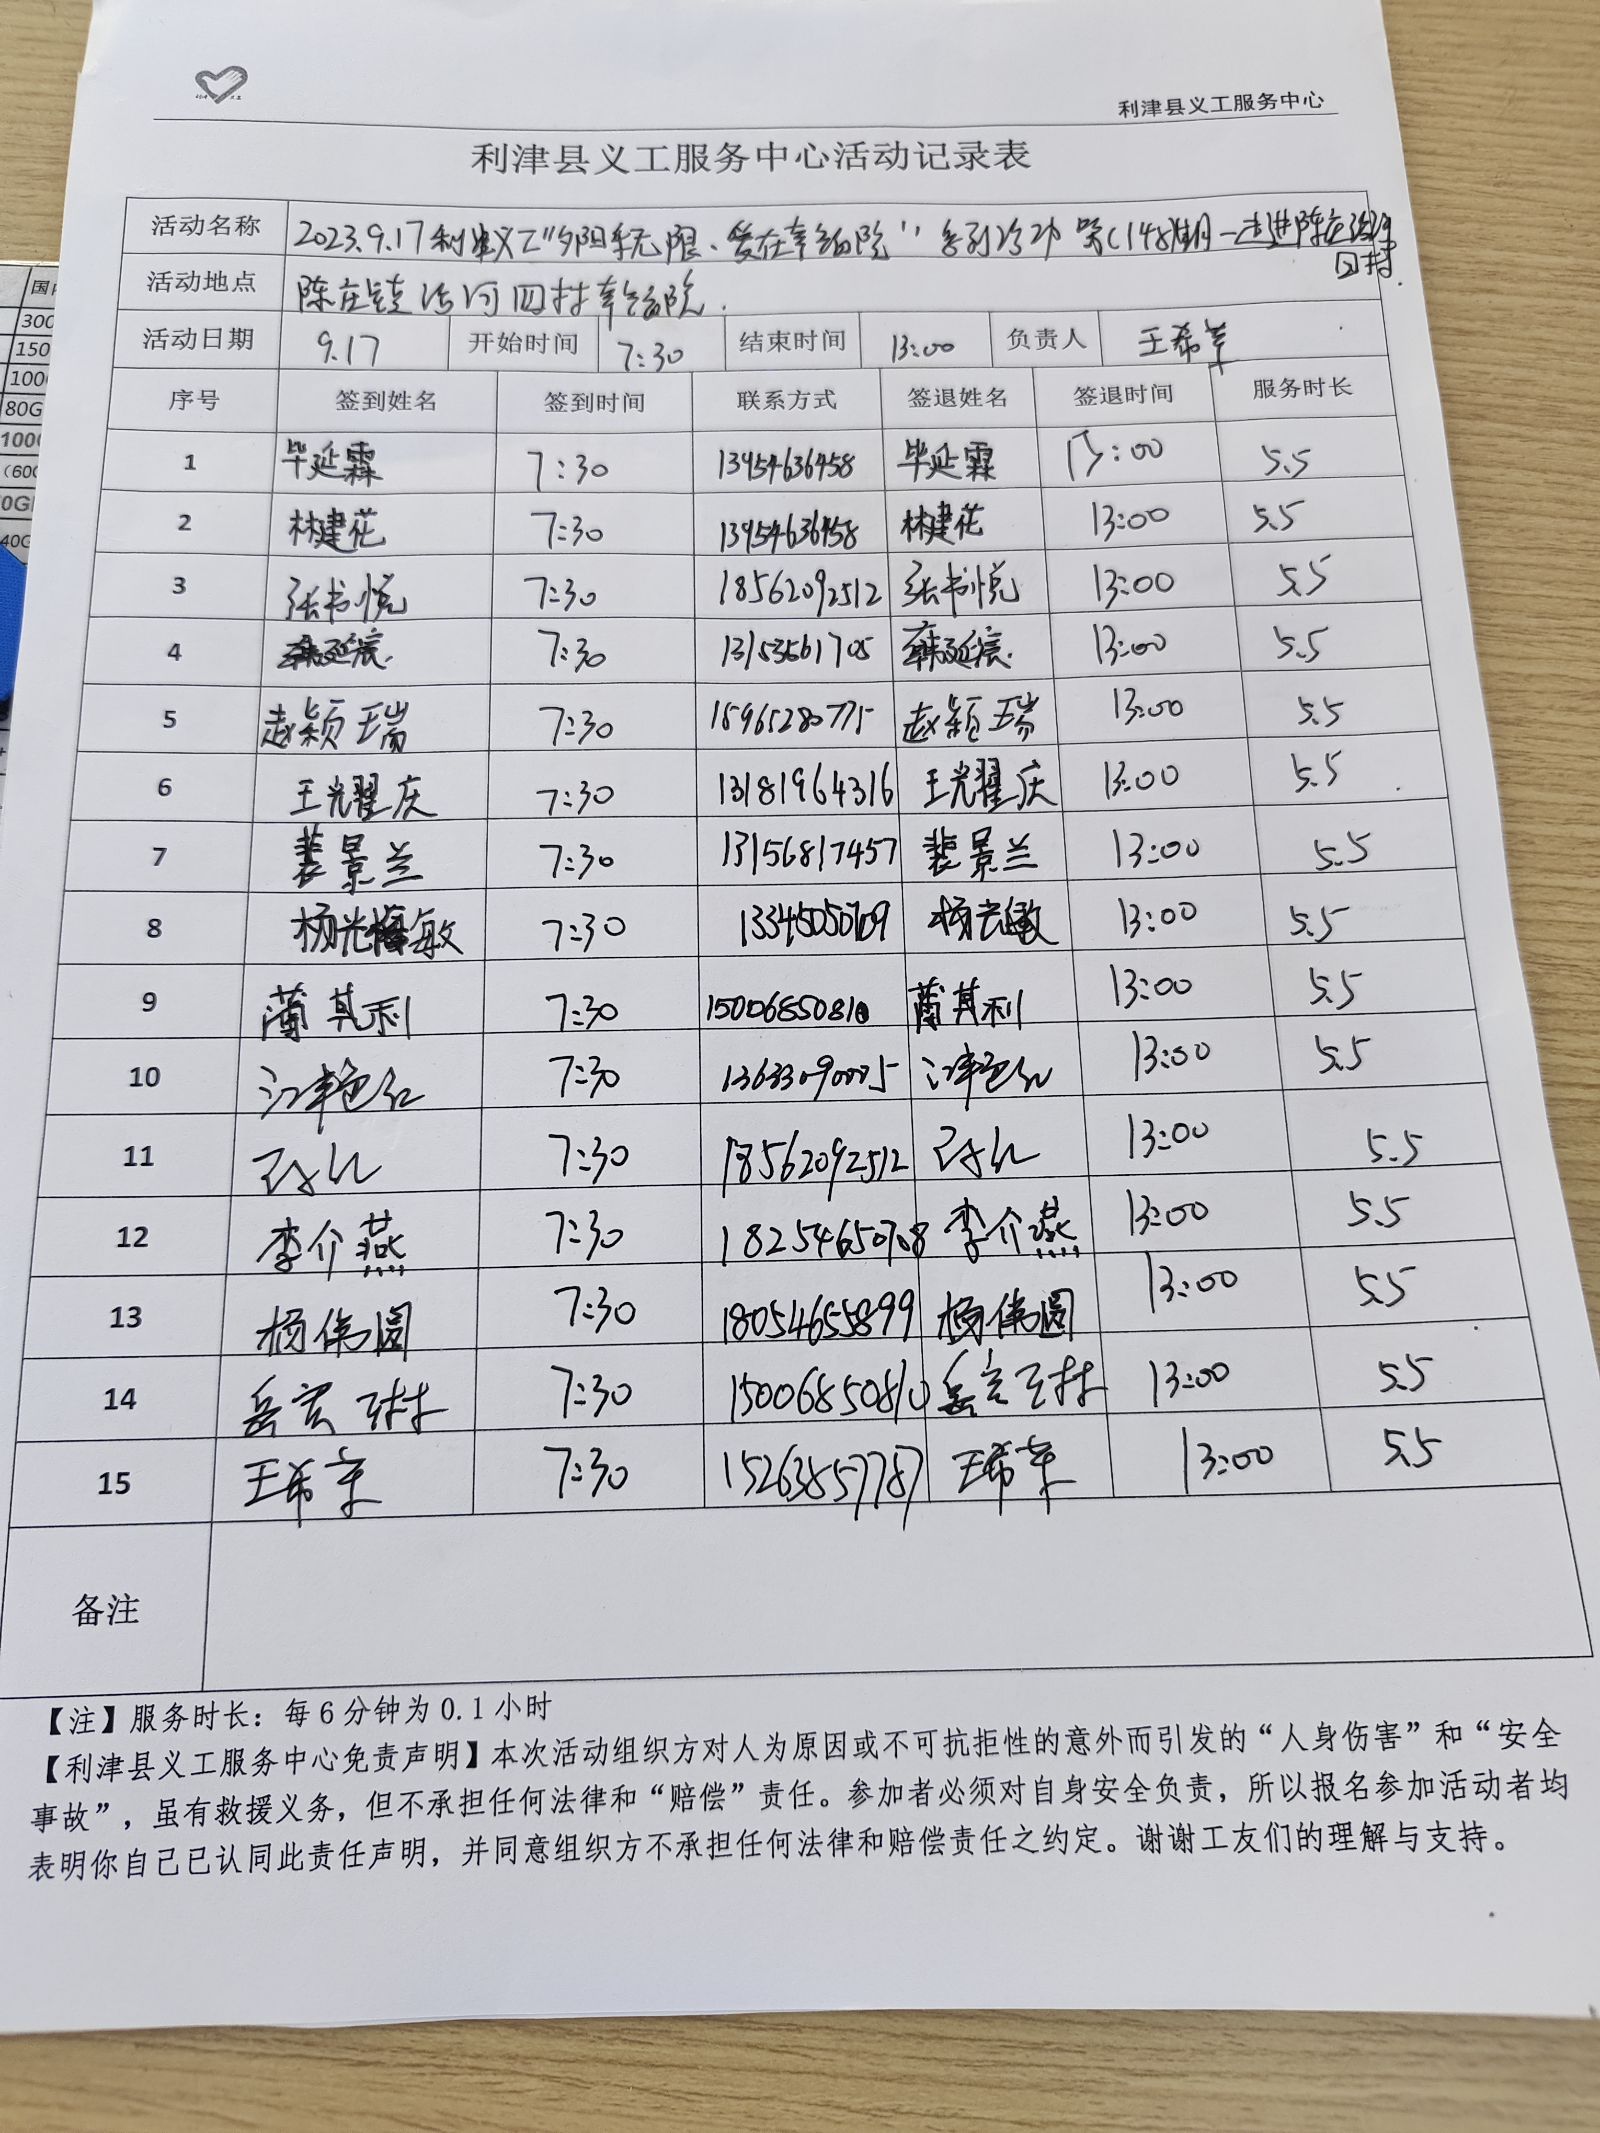 利津县义工服务中心
利津县义工服务中心活动记录表
活动名称 2023.9.17利津义工“夕阳无限、爱在幸福院”系列活动 第(148)期—走进陈庄
四村
活动地点 陈庄镇 河四村幸福院.
活动日期 9.17 开始时间 7:30 结束时间 13:00 负责人 王希
序号 签到姓名 签到时间 联系方式 签退姓名 签退时间 服务时长
1 毕延霖 7:30 13954636958 毕延霖 13:00 5.5
2 林建花 7:30 13954636958 林建花 13:00 5.5
3 张书悦 7:30 18562092512 张书悦 13:00 5.5
4 延宸 7:30 延宸 13:00 5.5
5 赵颖瑞 7:30 15965280775 赵颖瑞 13:00 5.5
6 王光耀庆 7:30 13181964316 王光耀庆 13:00 5.5
7 裴景兰 7:30 13156817457 裴景兰 13:00 5.5
8 杨光敏 7:30 杨光敏 13:00 5.5
9 薄其利 7:30 15006850810 薄其利 13:00 5.5
10 艳红 7:30 艳红 13:00 5.5
11 7:30 18562092512 13:00 5.5
12 李介燕 7:30 18254650708 李介燕 13:00 5.5
13 杨伟圆 7:30 18054655899 杨伟圆 13:00 5.5
14 岳 7:30 15006850810 岳 13:00 5.5
15 王希 7:30 15263857787 王希 13:00 5.5
备注
【注】服务时长：每6分钟为0.1小时
【利津县义工服务中心免责声明】本次活动组织方对人为原因或不可抗拒性的意外而引发的“人身伤害”和“安全
事故”，虽有救援义务，但不承担任何法律和“赔偿”责任。参加者必须对自身安全负责，所以报名参加活动者均
表明你自己已认同此责任声明，并同意组织方不承担任何法律和赔偿责任之约定。谢谢工友们的理解与支持。